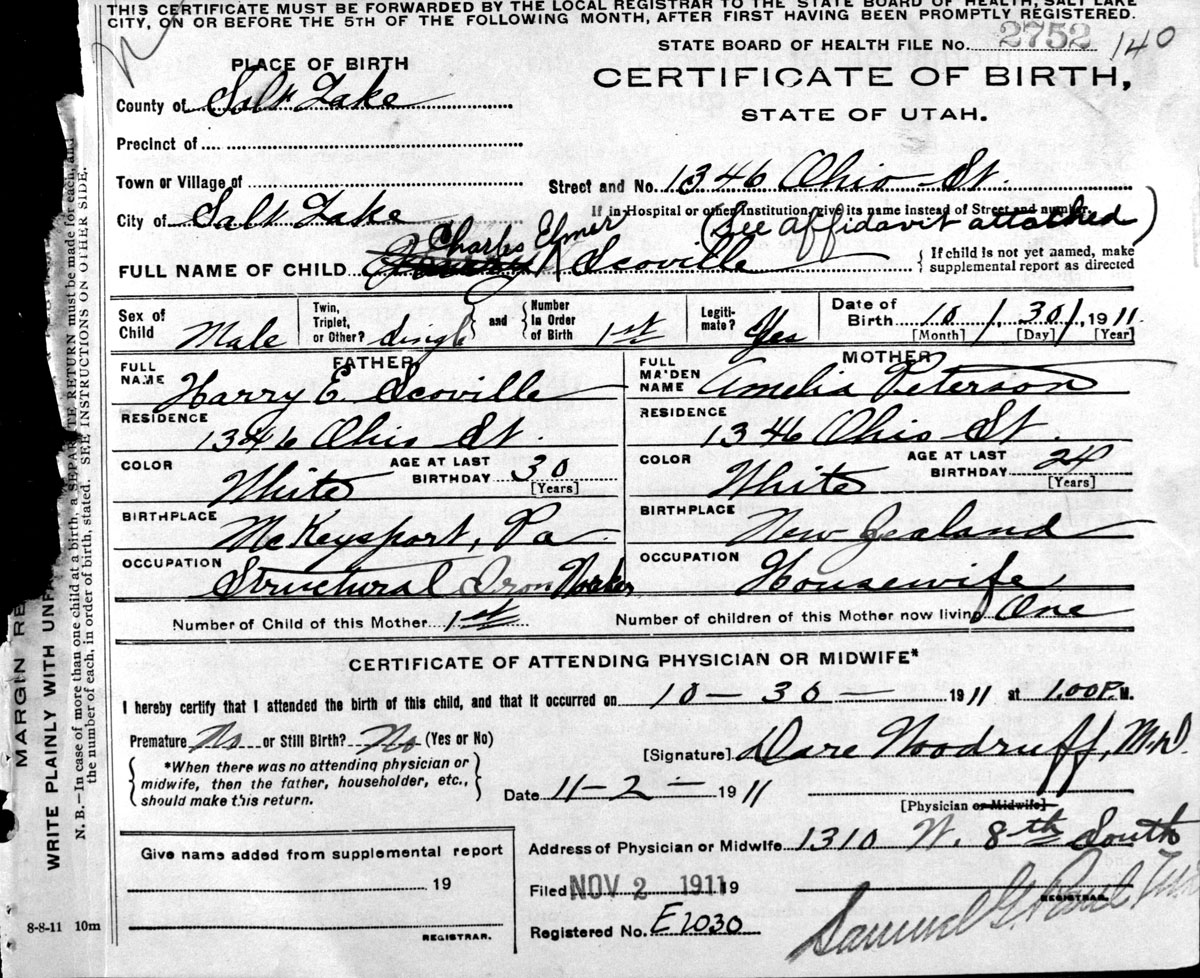 THIS CERTIFICATE MUST BE FORWARDED BY THE LOCAL REGISTRAR TO THE STATE BOARD OF HEALTH, SALT LAKE
CITY, ON OR BEFORE THE 5TH OF THE FOLLOWING MONTH, AFTER FIRST HAVING BEEN PROMPTLY REGISTERED.
STATE BOARD OF HEALTH FILE No. 2752 140
PLACE OF BIRTH
CERTIFICATE OF BIRTH,
STATE OF UTAH.
County of Salt Lake
Precinct of
Town or Village of
Street and No. 1346 Ohio St.
City of Salt Lake
If in Hospital or other Institution, give its name instead of Street and number.
(See affidavit attached)
Charles Elmer
FULL NAME OF CHILD Scoville
If child is not yet named, make
supplemental report as directed
Sex of Child Male
Twin, Triplet, or Other? Single
and
Number in Order of Birth 1st
Legiti-mate? Yes
Date of Birth 10 / 30 / 1911
[Month] [Day] [Year]
FATHER
FULL NAME Harry E Scoville
RESIDENCE 1346 Ohio St.
COLOR White
AGE AT LAST BIRTHDAY 30 [Years]
BIRTHPLACE McKeysport, Pa
OCCUPATION Structural Iron Worker
MOTHER
FULL MAIDEN NAME Amelia Peterson
RESIDENCE 1346 Ohio St.
COLOR White
AGE AT LAST BIRTHDAY 24 [Years]
BIRTHPLACE New Zealand
OCCUPATION Housewife
Number of Child of this Mother 1st
Number of children of this Mother now living One
CERTIFICATE OF ATTENDING PHYSICIAN OR MIDWIFE*
I hereby certify that I attended the birth of this child, and that it occurred on 10-30- 1911 at 1.00 P. M.
Premature No or Still Birth? No (Yes or No)
*When there was no attending physician or
midwife, then the father, householder, etc.,
should make this return.
[Signature] Dare Woodruff, M.D.
Date 11-2- 1911
[Physician or Midwife]
Give name added from supplemental report
19
REGISTRAR.
Address of Physician or Midwife 1310 W. 8th South
Filed NOV 2 1911 19
Registered No. E2030
Samuel G. Paul
REGISTRAR.
8-8-11 10m
MARGIN RE
WRITE PLAINLY WITH UNF
N. B.—In case of more than one child at a birth, a SEPARATE RETURN must be made for each, and
the number of each, in order of birth, stated. SEE INSTRUCTIONS ON OTHER SIDE.